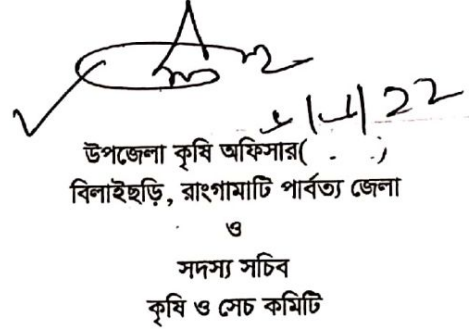 উপজেলা কৃষি অফিসার(
বিলাইছড়ি, রাংগামাটি পার্বত্য জেলা
ও
সদস্য সচিব
কৃষি ও সেচ কমিটি